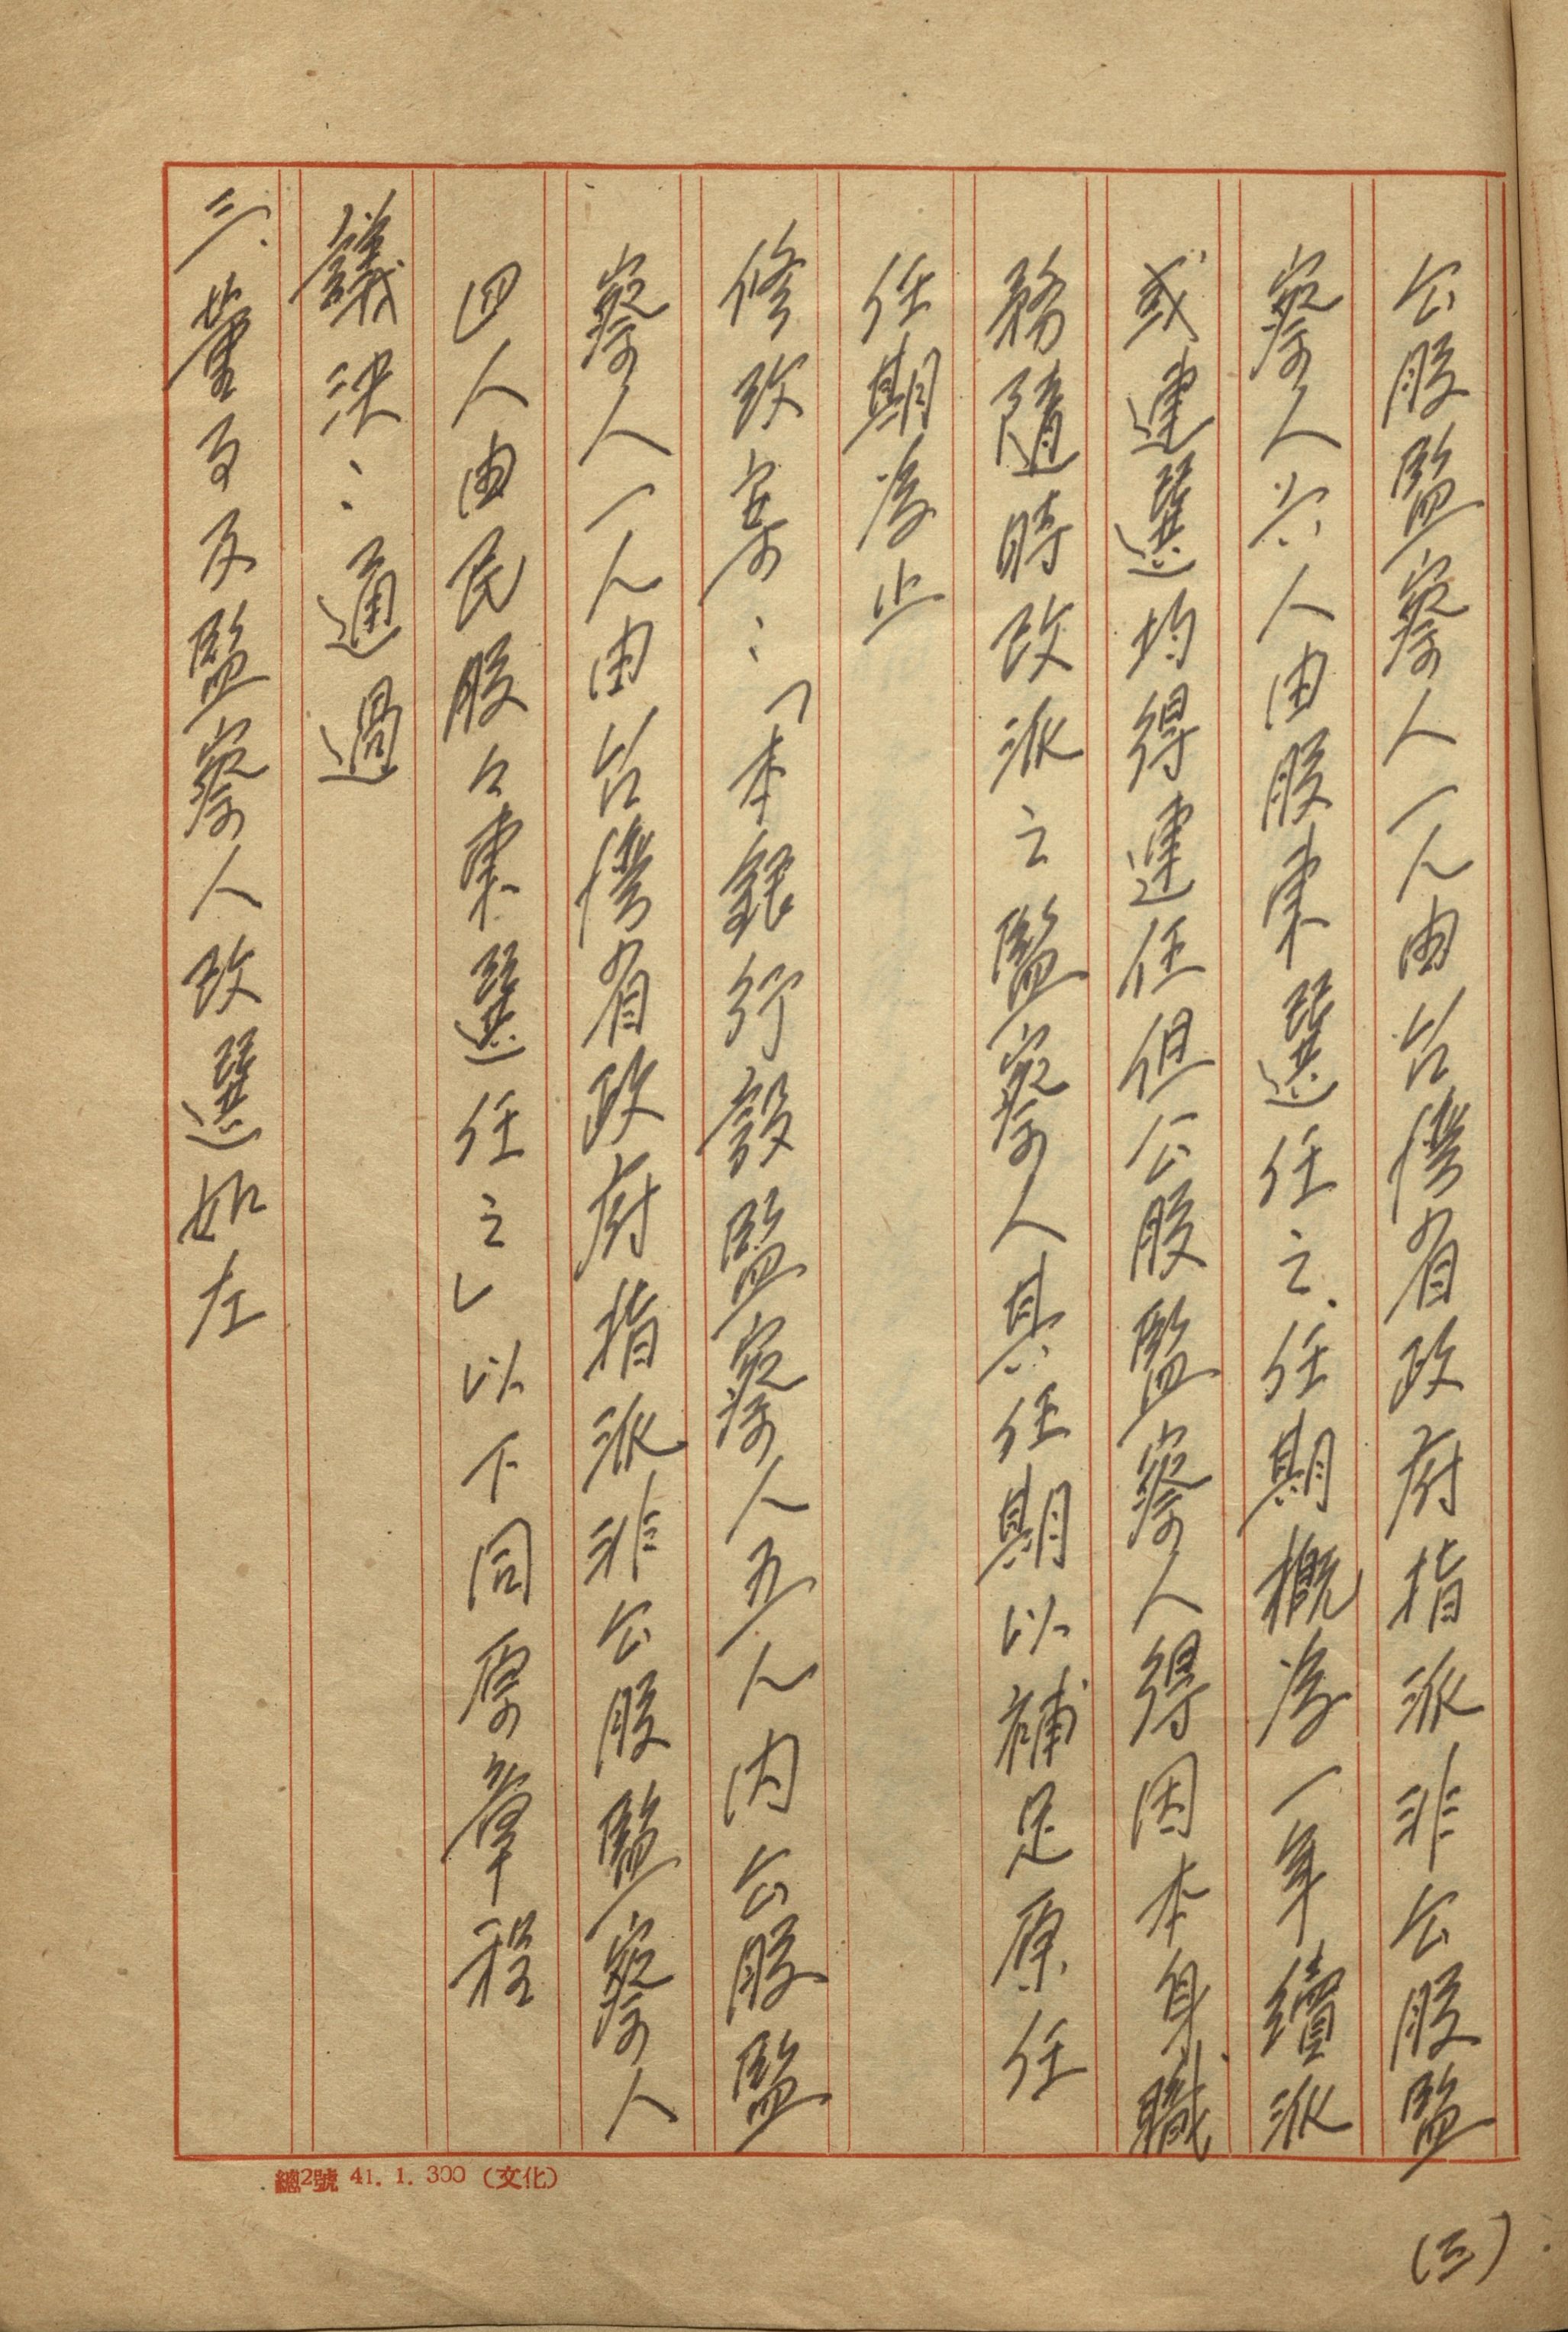 公股監察人一人由台灣省政府指派非公股監
察人六人由股東選任之.任期概為一年續派
或連選均得連任但公股監察人得因本身職
務隨時改派之監察人其任期以補足原任
任期為止
修改案：「本銀行設監察人五人內公股監
察人一人由台灣省政府指派非公股監察人
四人由民股々東選任之」以下同原章程
議決：通過
三、董事及監察人改選如左
總2號 41. 1. 300 (文化)
(三)